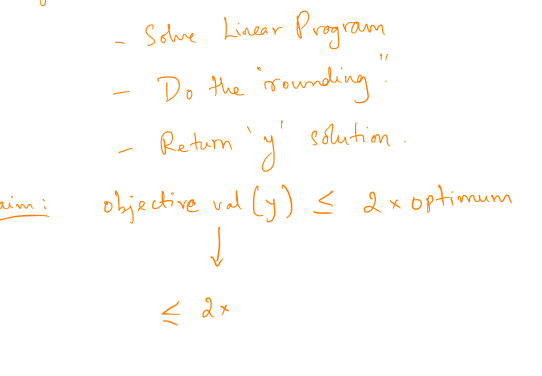 - Solve Linear Program
- Do the "rounding".
- Return 'y' solution.
aim: objective val(y) ≤ 2 × optimum
↓
≤ 2 ×